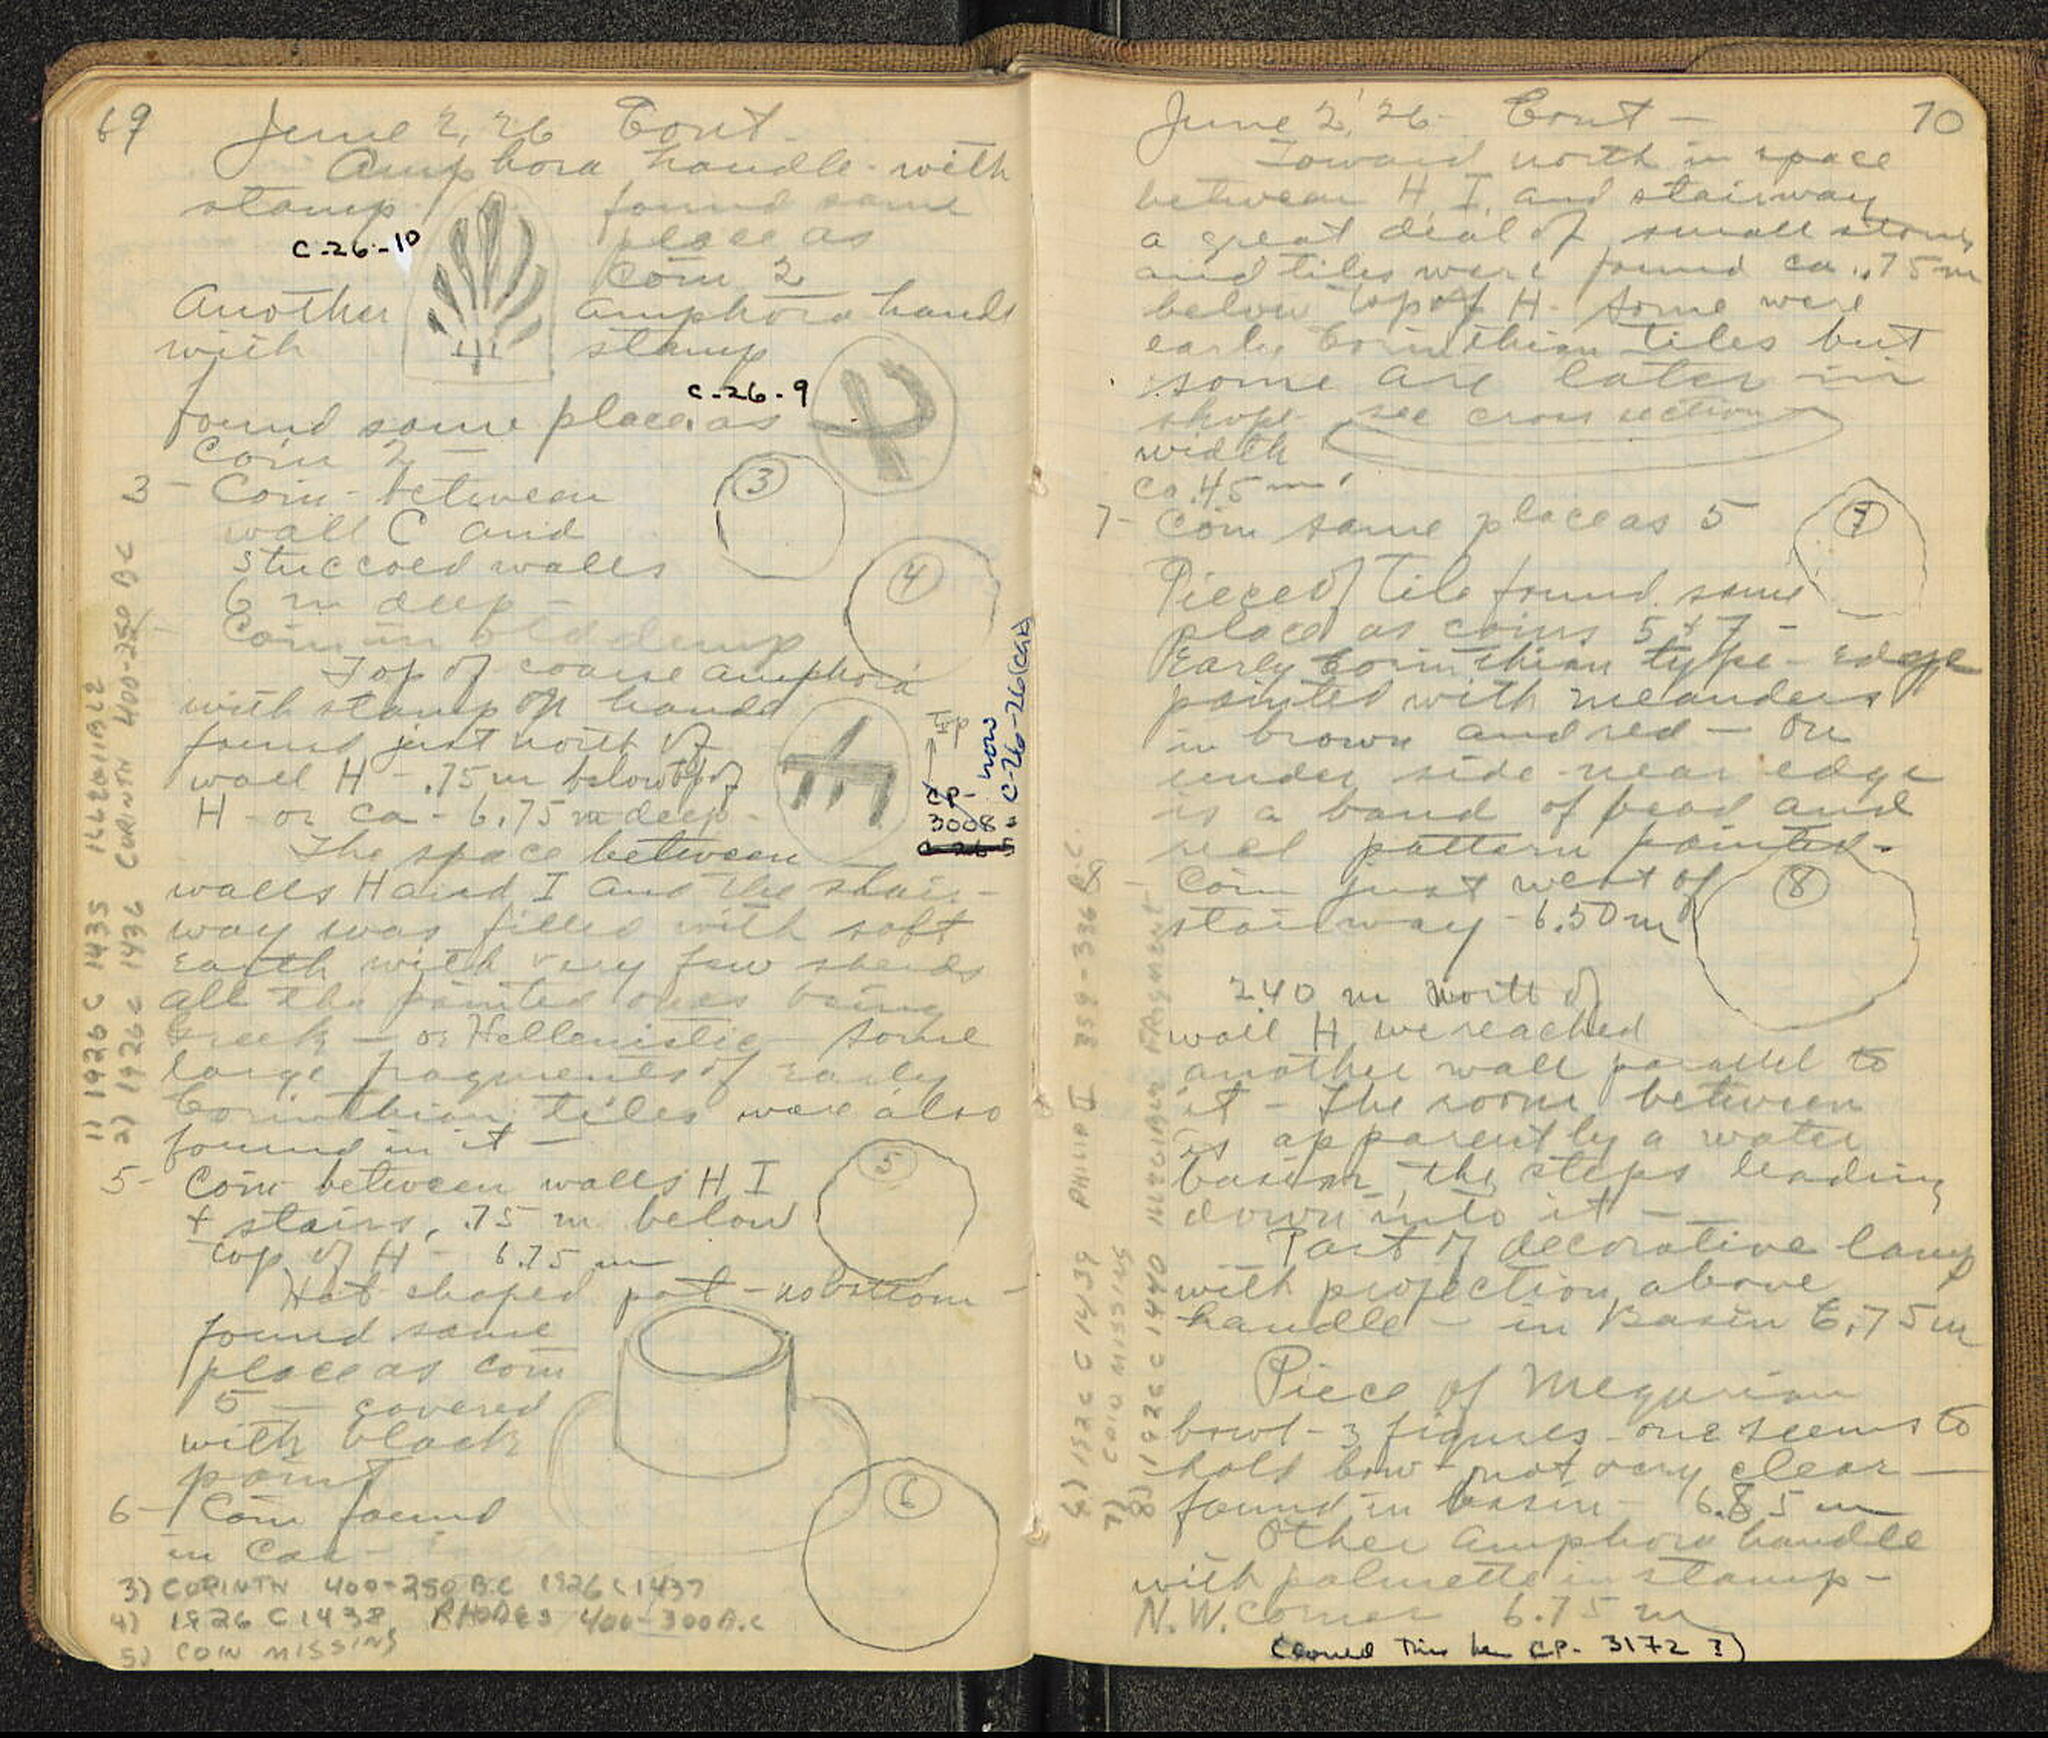 69 June 2, 26 Cont.
Amphora handle - with
stamp found same
place as
coin 2
C-26-10
Another amphora handle
with stamp
C-26-9
found same place as
Coin 2 -
3 - Coin - between
wall C and
stuccoed walls
6 m deep -
Coin in old dump
3
4
Top of coarse amphora
with stamp on handle
found just north of
wall H - .75 m below top of
H - or ca - 6.75 m deep -
Top
CP-
3008 =
now
C-26-26 (card)
The space between
walls H and I and the stair-
way was filled with soft
earth with very few sherds
all the painted ones being
Greek - or Hellenistic - some
large fragments of early
Corinthian tiles were also
found in it -
5 - Coin between walls H I
+ stairs, .75 m below
top of H - 6.75 m
5
Hat shaped pot - no bottom -
found same
place as coin
5 - covered
with black
paint
6 - Coin found
in Car -
6
3) CORINTH 400-250 B.C 1926 C 1437
4) 1926 C 1438 RHODES 400-300 B.C
5) COIN MISSING
1) 1926 C 1435 ILLEGIBLE
2) 1926 C 1436 CORINTH 400-250 BC
June 2, '26 - Cont - 70
Toward north in space
between H, I, and stairway
a great deal of small stones
and tiles were found ca .75 m
below top of H - some were
early Corinthian tiles but
some are later in
shape - see cross section
width
ca .45 m.
7 - Coin same place as 5
7
Piece of tile found same
place as coins 5 + 7 -
Early Corinthian type - edge
painted with meanders
in brown and red - On
under side near edge
is a band of bead and
reel pattern painted -
Coin just west of
stairway - 6.50 m
8
2.40 m North of
wall H we reached
another wall parallel to
it - The room between
is apparently a water
basin, the steps leading
down into it -
Part of decorative lamp
with projection above
handle - in Basin 6.75 m
Piece of Megarian
bowl - 3 figures - one seems to
hold bow - not very clear -
found in basin - 6.85 m
Other amphora handle
with palmette in stamp -
N.W. corner 6.75 m
(Could this be CP- 3172?)
6) 1926 C 1439 PHILIP II 359-336 B.C.
7) COIN MISSING
8) 1926 C 1440 ILLEGIBLE FRAGMENT